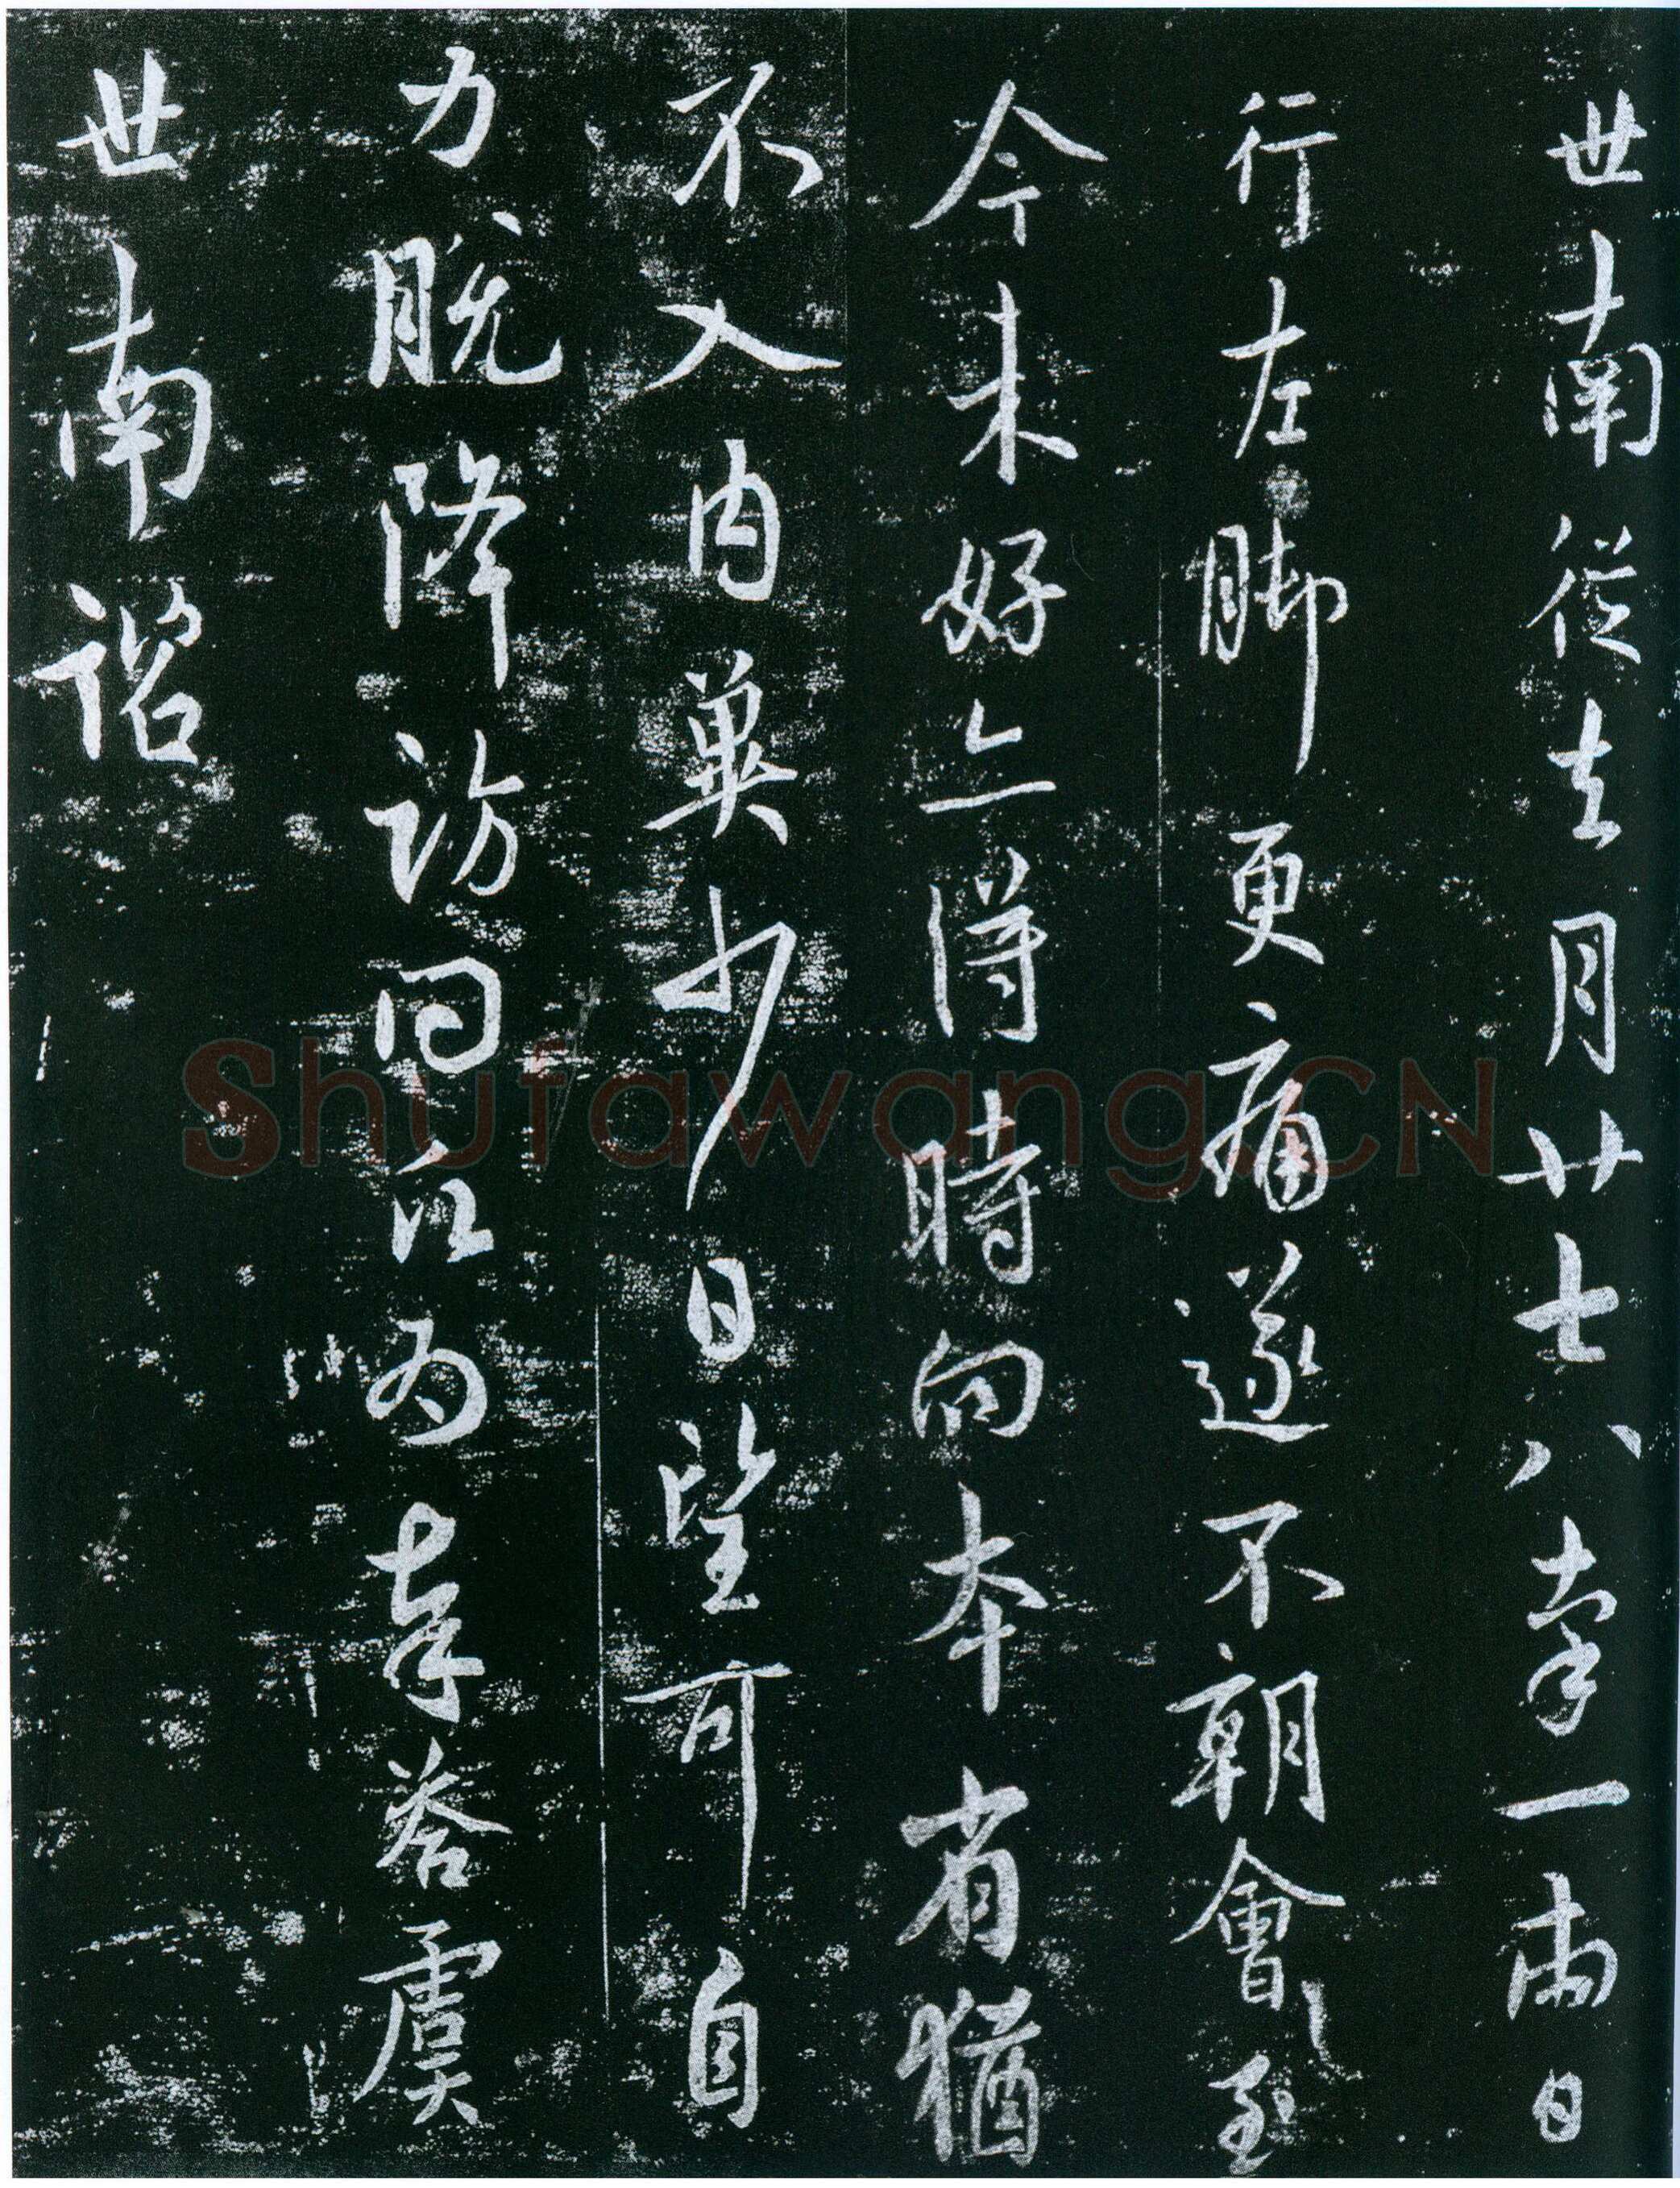 世南從去月廿七八牽一兩日
行左脚更痛遂不朝會至
今未好亦得時向本省猶
不入內冀少日望可自
力脫降訪問願為奉答虞
世南諮
Shufawang.CN